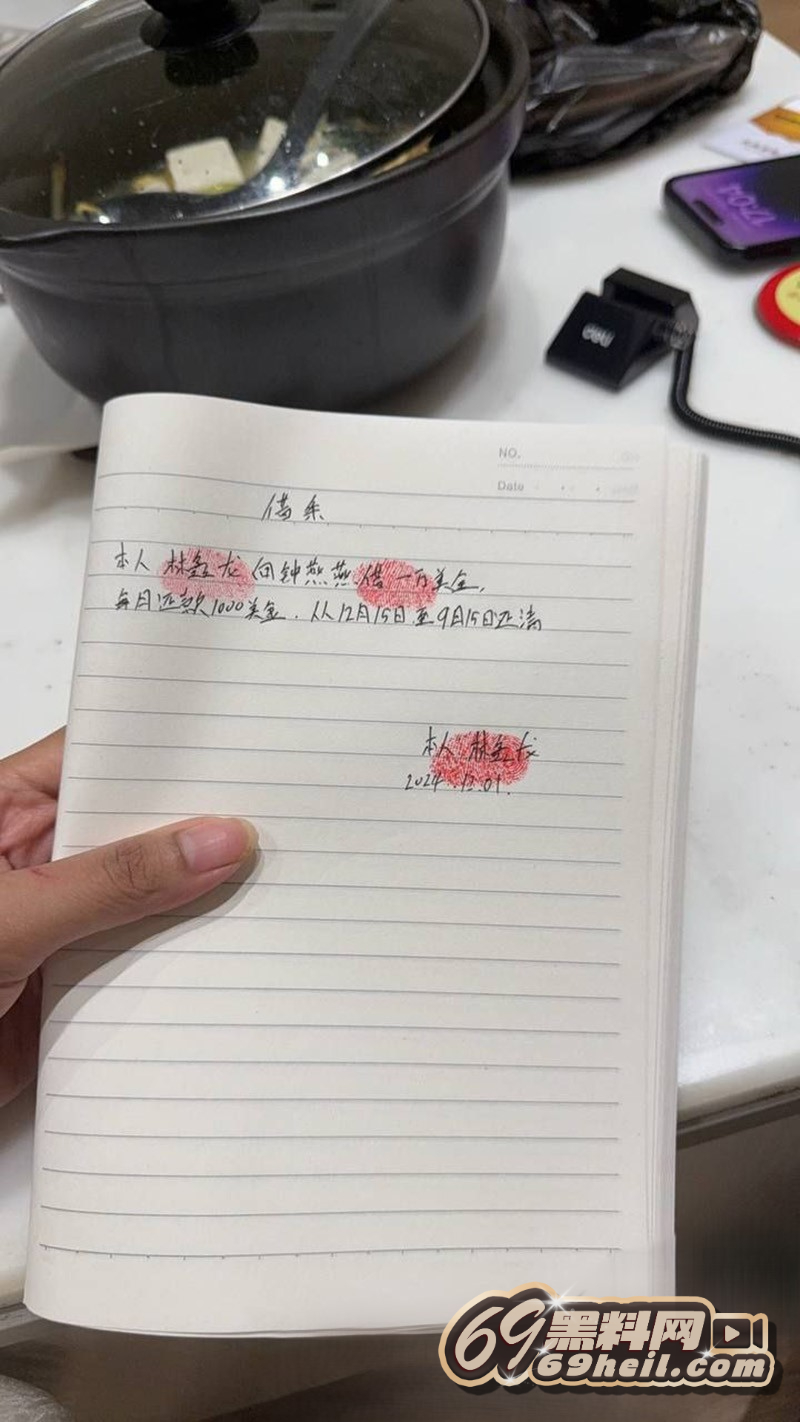 17:04
deli
NO.
Date
借条
本人 林金龙 向钟燕燕借一万美金,
每月还款1000美金. 从12月15日至9月15日还清
本人 林金龙
2024 12.01.
69黑料网
69heil.com